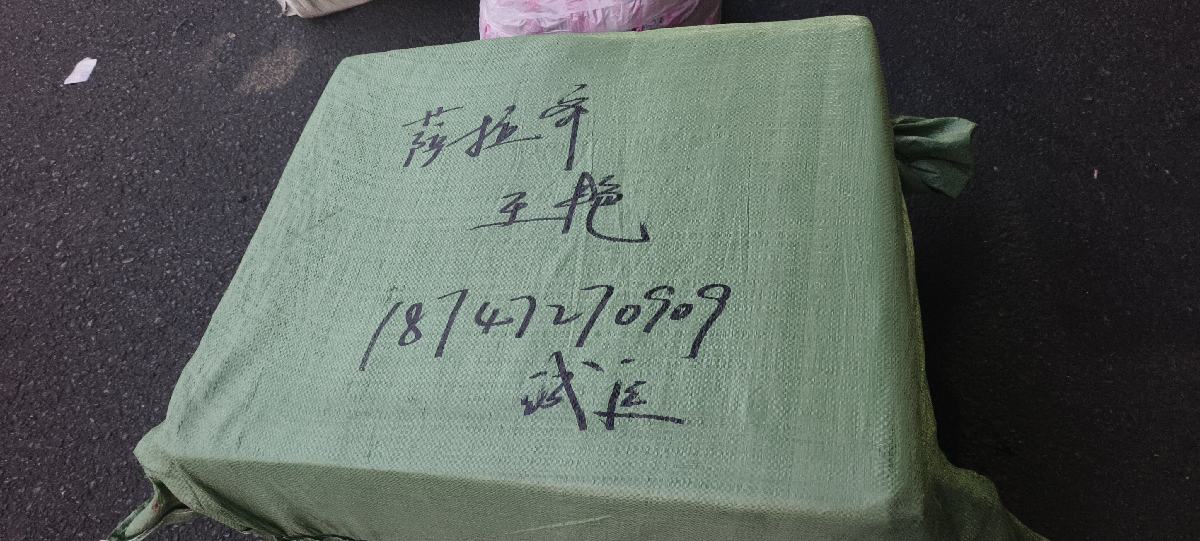 萨拉齐
王艳
18747270909
武运